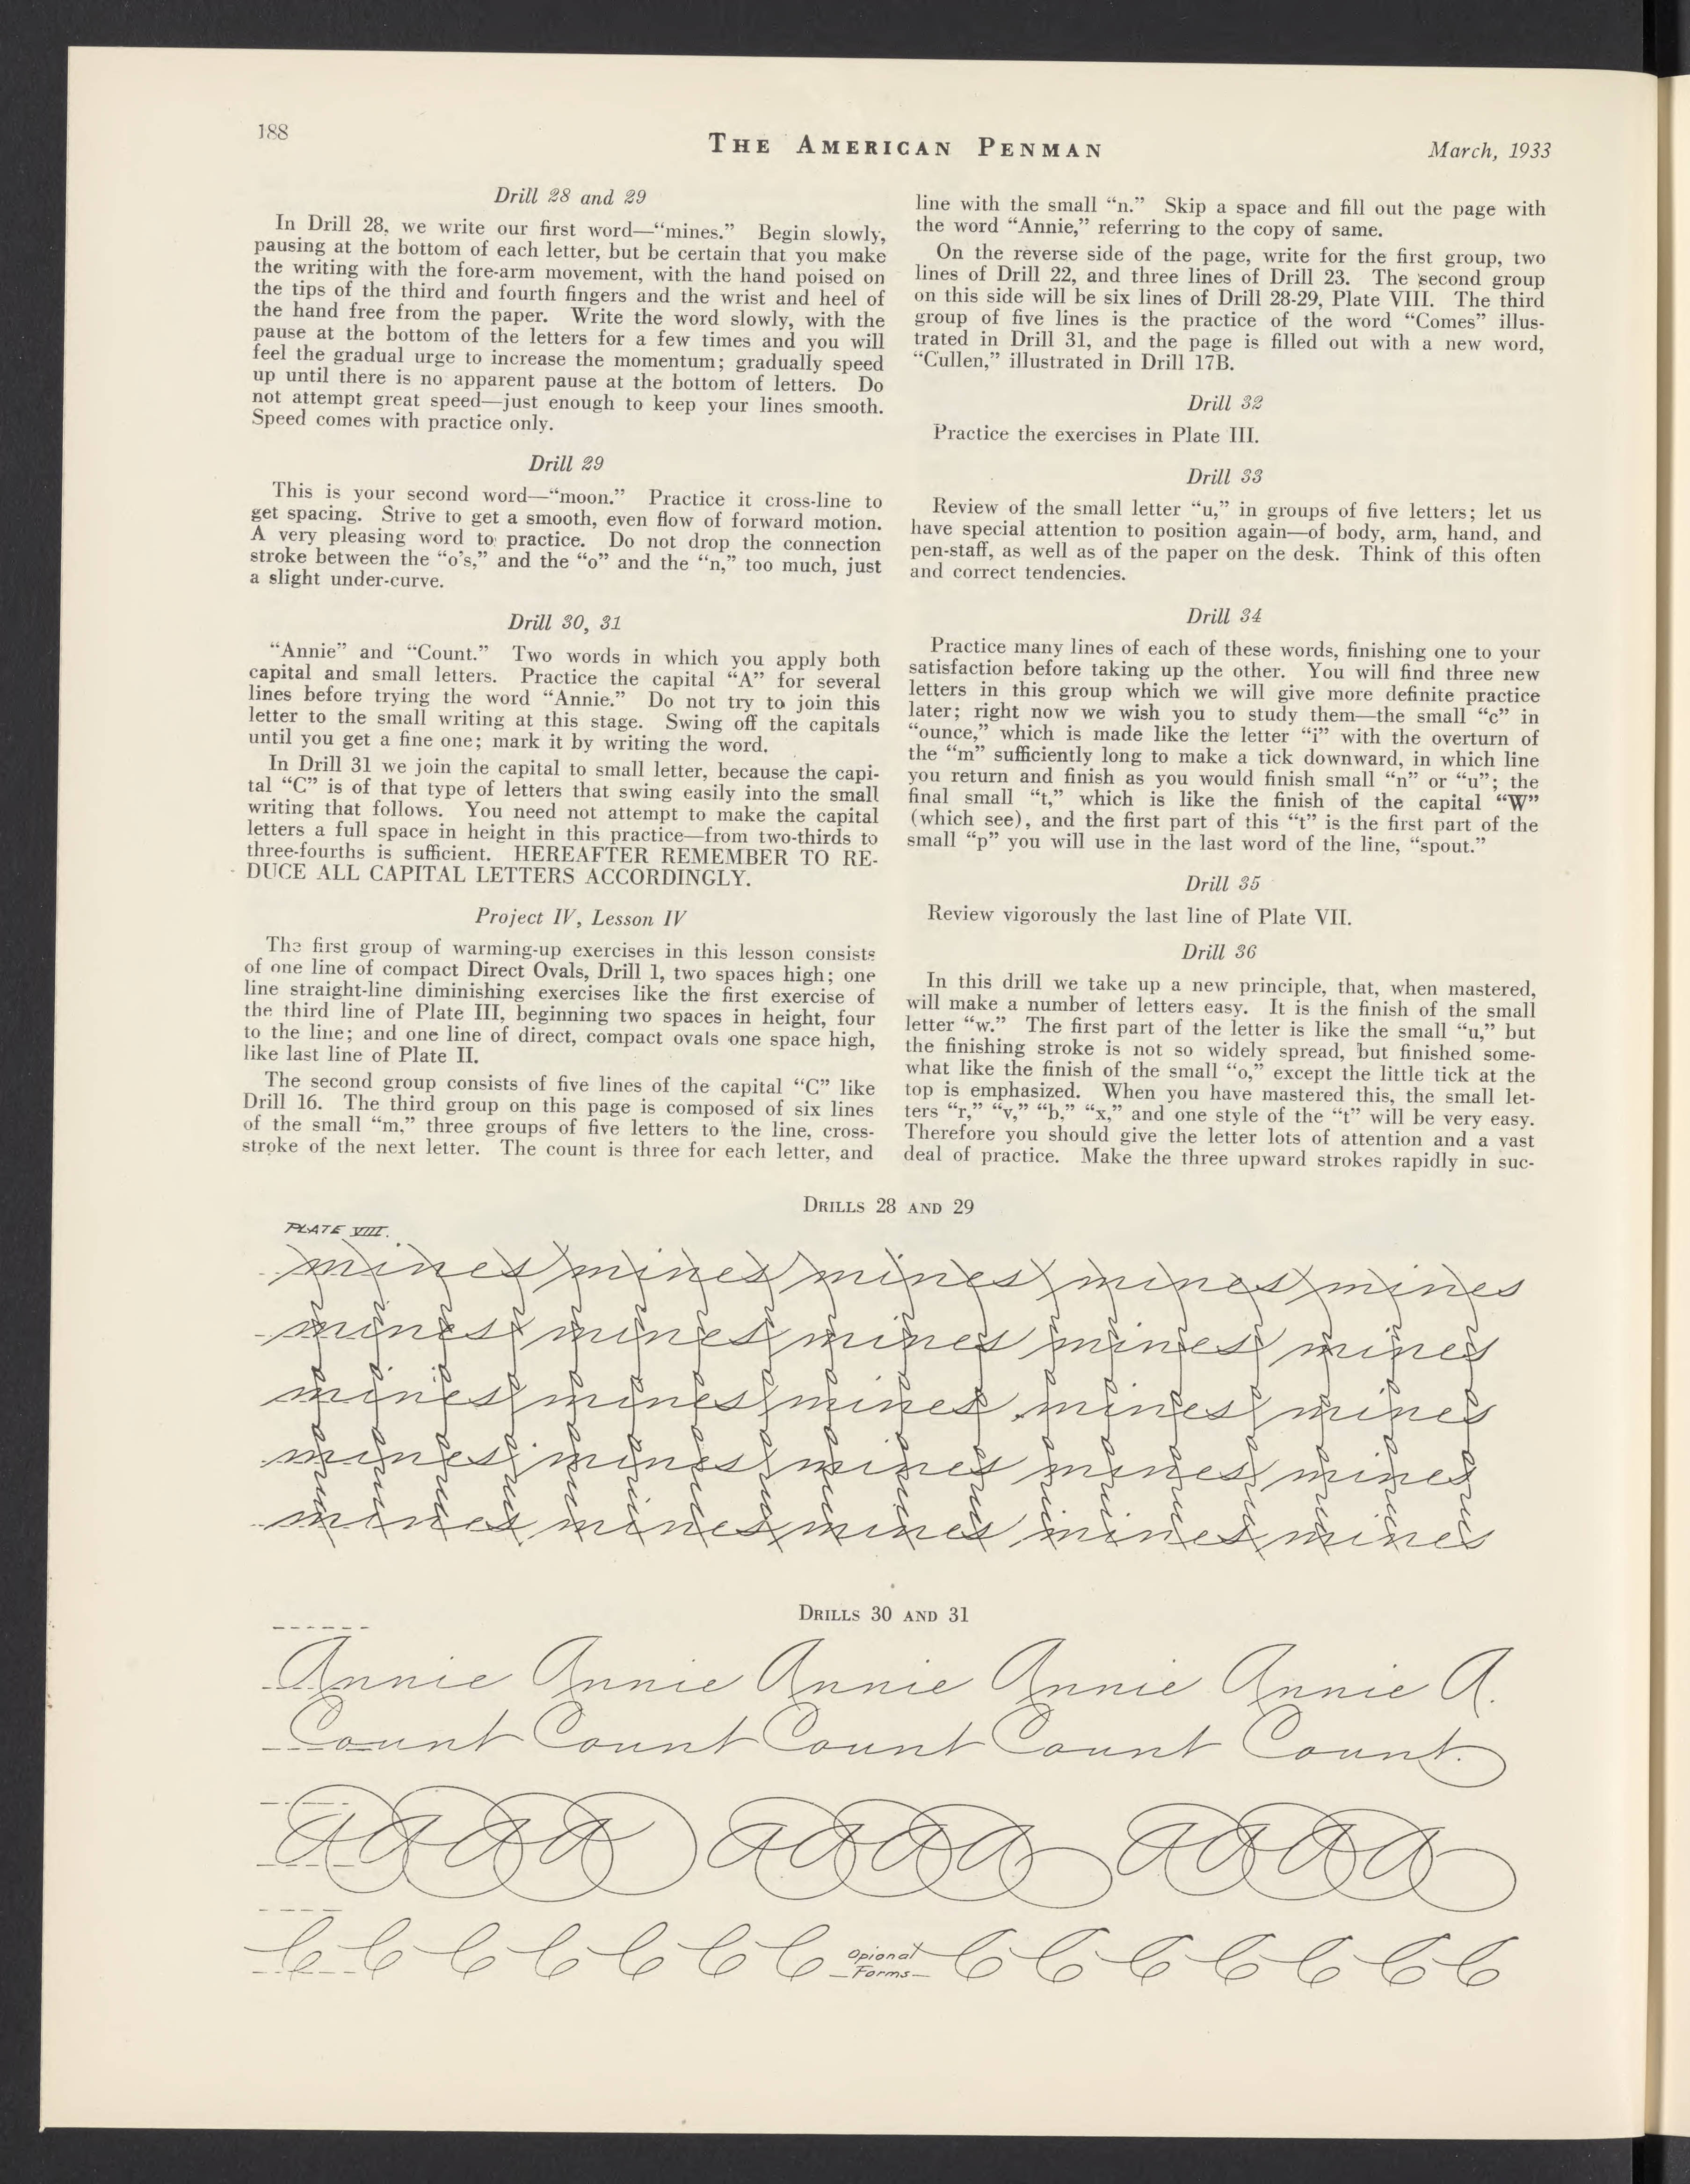 188
THE AMERICAN PENMAN
March, 1933
Drill 28 and 29
In Drill 28, we write our first word—“mines.” Begin slowly,
pausing at the bottom of each letter, but be certain that you make
the writing with the fore-arm movement, with the hand poised on
the tips of the third and fourth fingers and the wrist and heel of
the hand free from the paper. Write the word slowly, with the
pause at the bottom of the letters for a few times and you will
feel the gradual urge to increase the momentum; gradually speed
up until there is no apparent pause at the bottom of letters. Do
not attempt great speed—just enough to keep your lines smooth.
Speed comes with practice only.
Drill 29
This is your second word—“moon.” Practice it cross-line to
get spacing. Strive to get a smooth, even flow of forward motion.
A very pleasing word to practice. Do not drop the connection
stroke between the “o's,” and the “o” and the “n,” too much, just
a slight under-curve.
Drill 30, 31
“Annie” and “Count.” Two words in which you apply both
capital and small letters. Practice the capital “A” for several
lines before trying the word “Annie.” Do not try to join this
letter to the small writing at this stage. Swing off the capitals
until you get a fine one; mark it by writing the word.
In Drill 31 we join the capital to small letter, because the capi-
tal “C” is of that type of letters that swing easily into the small
writing that follows. You need not attempt to make the capital
letters a full space in height in this practice—from two-thirds to
three-fourths is sufficient. HEREAFTER REMEMBER TO RE-
DUCE ALL CAPITAL LETTERS ACCORDINGLY.
Project IV, Lesson IV
The first group of warming-up exercises in this lesson consists
of one line of compact Direct Ovals, Drill 1, two spaces high; one
line straight-line diminishing exercises like the first exercise of
the third line of Plate III, beginning two spaces in height, four
to the line; and one line of direct, compact ovals one space high,
like last line of Plate II.
The second group consists of five lines of the capital “C” like
Drill 16. The third group on this page is composed of six lines
of the small “m,” three groups of five letters to the line, cross-
stroke of the next letter. The count is three for each letter, and
line with the small “n.” Skip a space and fill out the page with
the word “Annie,” referring to the copy of same.
On the reverse side of the page, write for the first group, two
lines of Drill 22, and three lines of Drill 23. The second group
on this side will be six lines of Drill 28-29, Plate VIII. The third
group of five lines is the practice of the word “Comes” illus-
trated in Drill 31, and the page is filled out with a new word,
“Cullen,” illustrated in Drill 17B.
Drill 32
Practice the exercises in Plate III.
Drill 33
Review of the small letter “u,” in groups of five letters; let us
have special attention to position again—of body, arm, hand, and
pen-staff, as well as of the paper on the desk. Think of this often
and correct tendencies.
Drill 34
Practice many lines of each of these words, finishing one to your
satisfaction before taking up the other. You will find three new
letters in this group which we will give more definite practice
later; right now we wish you to study them—the small “c” in
“ounce,” which is made like the letter “i” with the overturn of
the “m” sufficiently long to make a tick downward, in which line
you return and finish as you would finish small “n” or “u”; the
final small “t,” which is like the finish of the capital “W”
(which see), and the first part of this “t” is the first part of the
small “p” you will use in the last word of the line, “spout.”
Drill 35
Review vigorously the last line of Plate VII.
Drill 36
In this drill we take up a new principle, that, when mastered,
will make a number of letters easy. It is the finish of the small
letter “w.” The first part of the letter is like the small “u,” but
the finishing stroke is not so widely spread, but finished some-
what like the finish of the small “o,” except the little tick at the
top is emphasized. When you have mastered this, the small let-
ters “r,” “v,” “b,” “x,” and one style of the “t” will be very easy.
Therefore you should give the letter lots of attention and a vast
deal of practice. Make the three upward strokes rapidly in suc-
DRILLS 28 AND 29
PLATE VIII.
mines mines mines mines mines
mines mines mines mines mines
mines mines mines mines mines
mines mines mines mines mines
mines mines mines mines mines
DRILLS 30 AND 31
Annie Annie Annie Annie Annie A.
Count Count Count Count Count.
a a a a a a a a a a a a
C C C C C C C Opional C C C C C C C
Forms